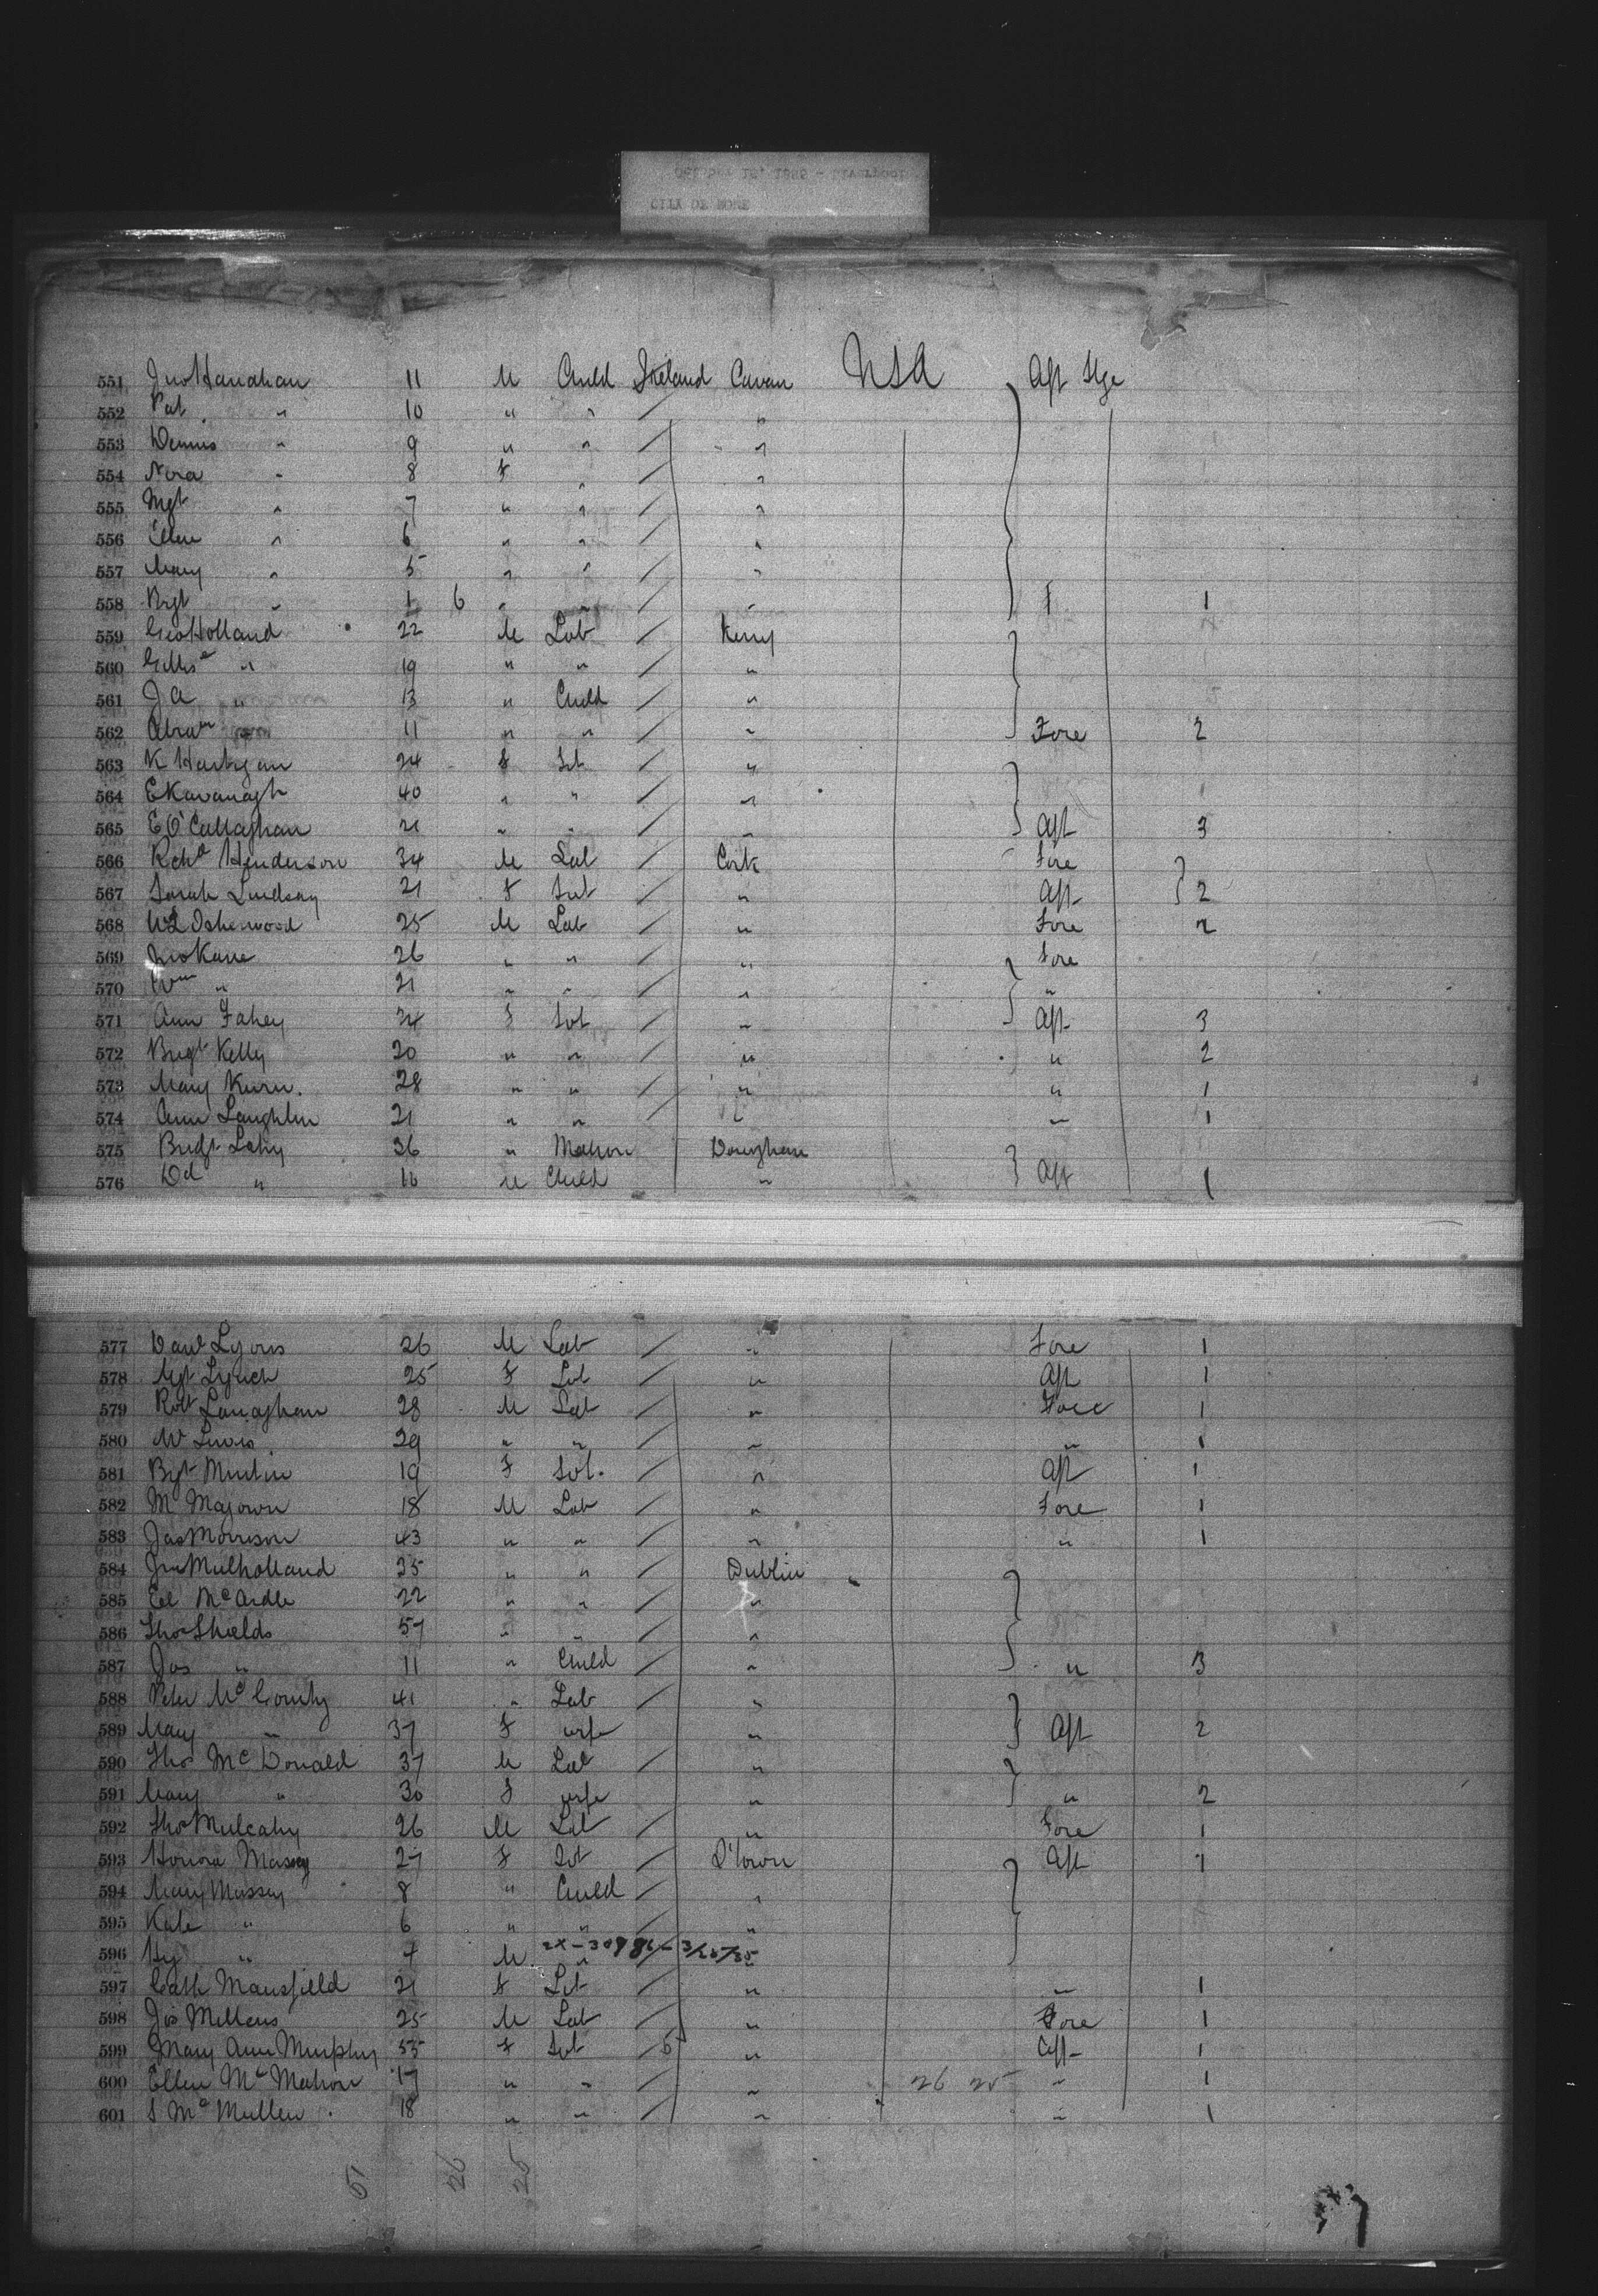 CITY OF ROME
551 Jno Hanahan 11 M Child Ireland Cavan USA Aft Stge
552 Pat " 10 " " / "
553 Dennis " 9 " " / "
554 Nora " 8 F " / "
555 Mgt " 7 " " / "
556 Ellen " 6 " " / "
557 Mary " 5 " " / "
558 Bgt " 1 6 " " / " 1
559 Geo Holland 22 M Lab / Kerry
560 " 19 " " / "
561 J A " 13 " Child / "
562 Abram " 11 " " / " Fore 2
563 K Hartigan 24 F Svt / "
564 E Kavanagh 40 " " / "
565 E O'Callaghan 21 " " / " Aft 3
566 Richd Henderson 34 M Lab / Cork Fore
567 Sarah Lindsay 21 F Svt / " Aft } 2
568 Isherwood 25 M Lab / " Fore 2
569 Jno Kane 26 " " / " Fore
570 Wm " 21 " " / " "
571 Ann Fahey 24 F Svt / " Aft 3
572 Brigt Kelly 20 " " / " " 2
573 Mary 28 " " / " " 1
574 Ann Laughlin 21 " " / " " 1
575 Bridgt 36 " Matron
576 " M Child " } Aft 1
577 Davd Lyons 26 M Lab / " Fore 1
578 Mgt Lynch 25 F Svt / " Aft 1
579 Robt Lanaghan 28 M Lab / " Fore 1
580 W Lewis 29 " " / " " 1
581 Bgt Martin 19 F Svt. / " Aft 1
582 M 18 M Lab / " Fore 1
583 Jas Morrison 43 " " / " " 1
584 Jno Mulholland 35 " " / Dublin
585 Ed McArdle 22 " " / "
586 Thos Shields 57 " " / "
587 Jas " 11 " Child / " " 3
588 Peter Mc 41 " Lab / "
589 Mary " 37 F wife " } Aft 2
590 Thos McDonald 37 M Lab / "
591 Mary " 30 F wife " } " 2
592 Thos Mulcahy 26 M Lab / " Fore 1
593 Honora Massey 27 F Svt / Q'town Aft 1
594 Mary Massey 8 " Child / "
595 Kate " 6 " " / "
596 Hy " 4 M " / "
597 Cath Mansfield 21 F Svt " " 1
598 Jos 25 M Lab " Fore 1
599 Mary Ann Murphy 55 F Svt " Aft 1
600 Ellen McMahon 17 " " / " 26 25 " 1
601 S McMullen 18 " " / " " 1
51 26 25
57